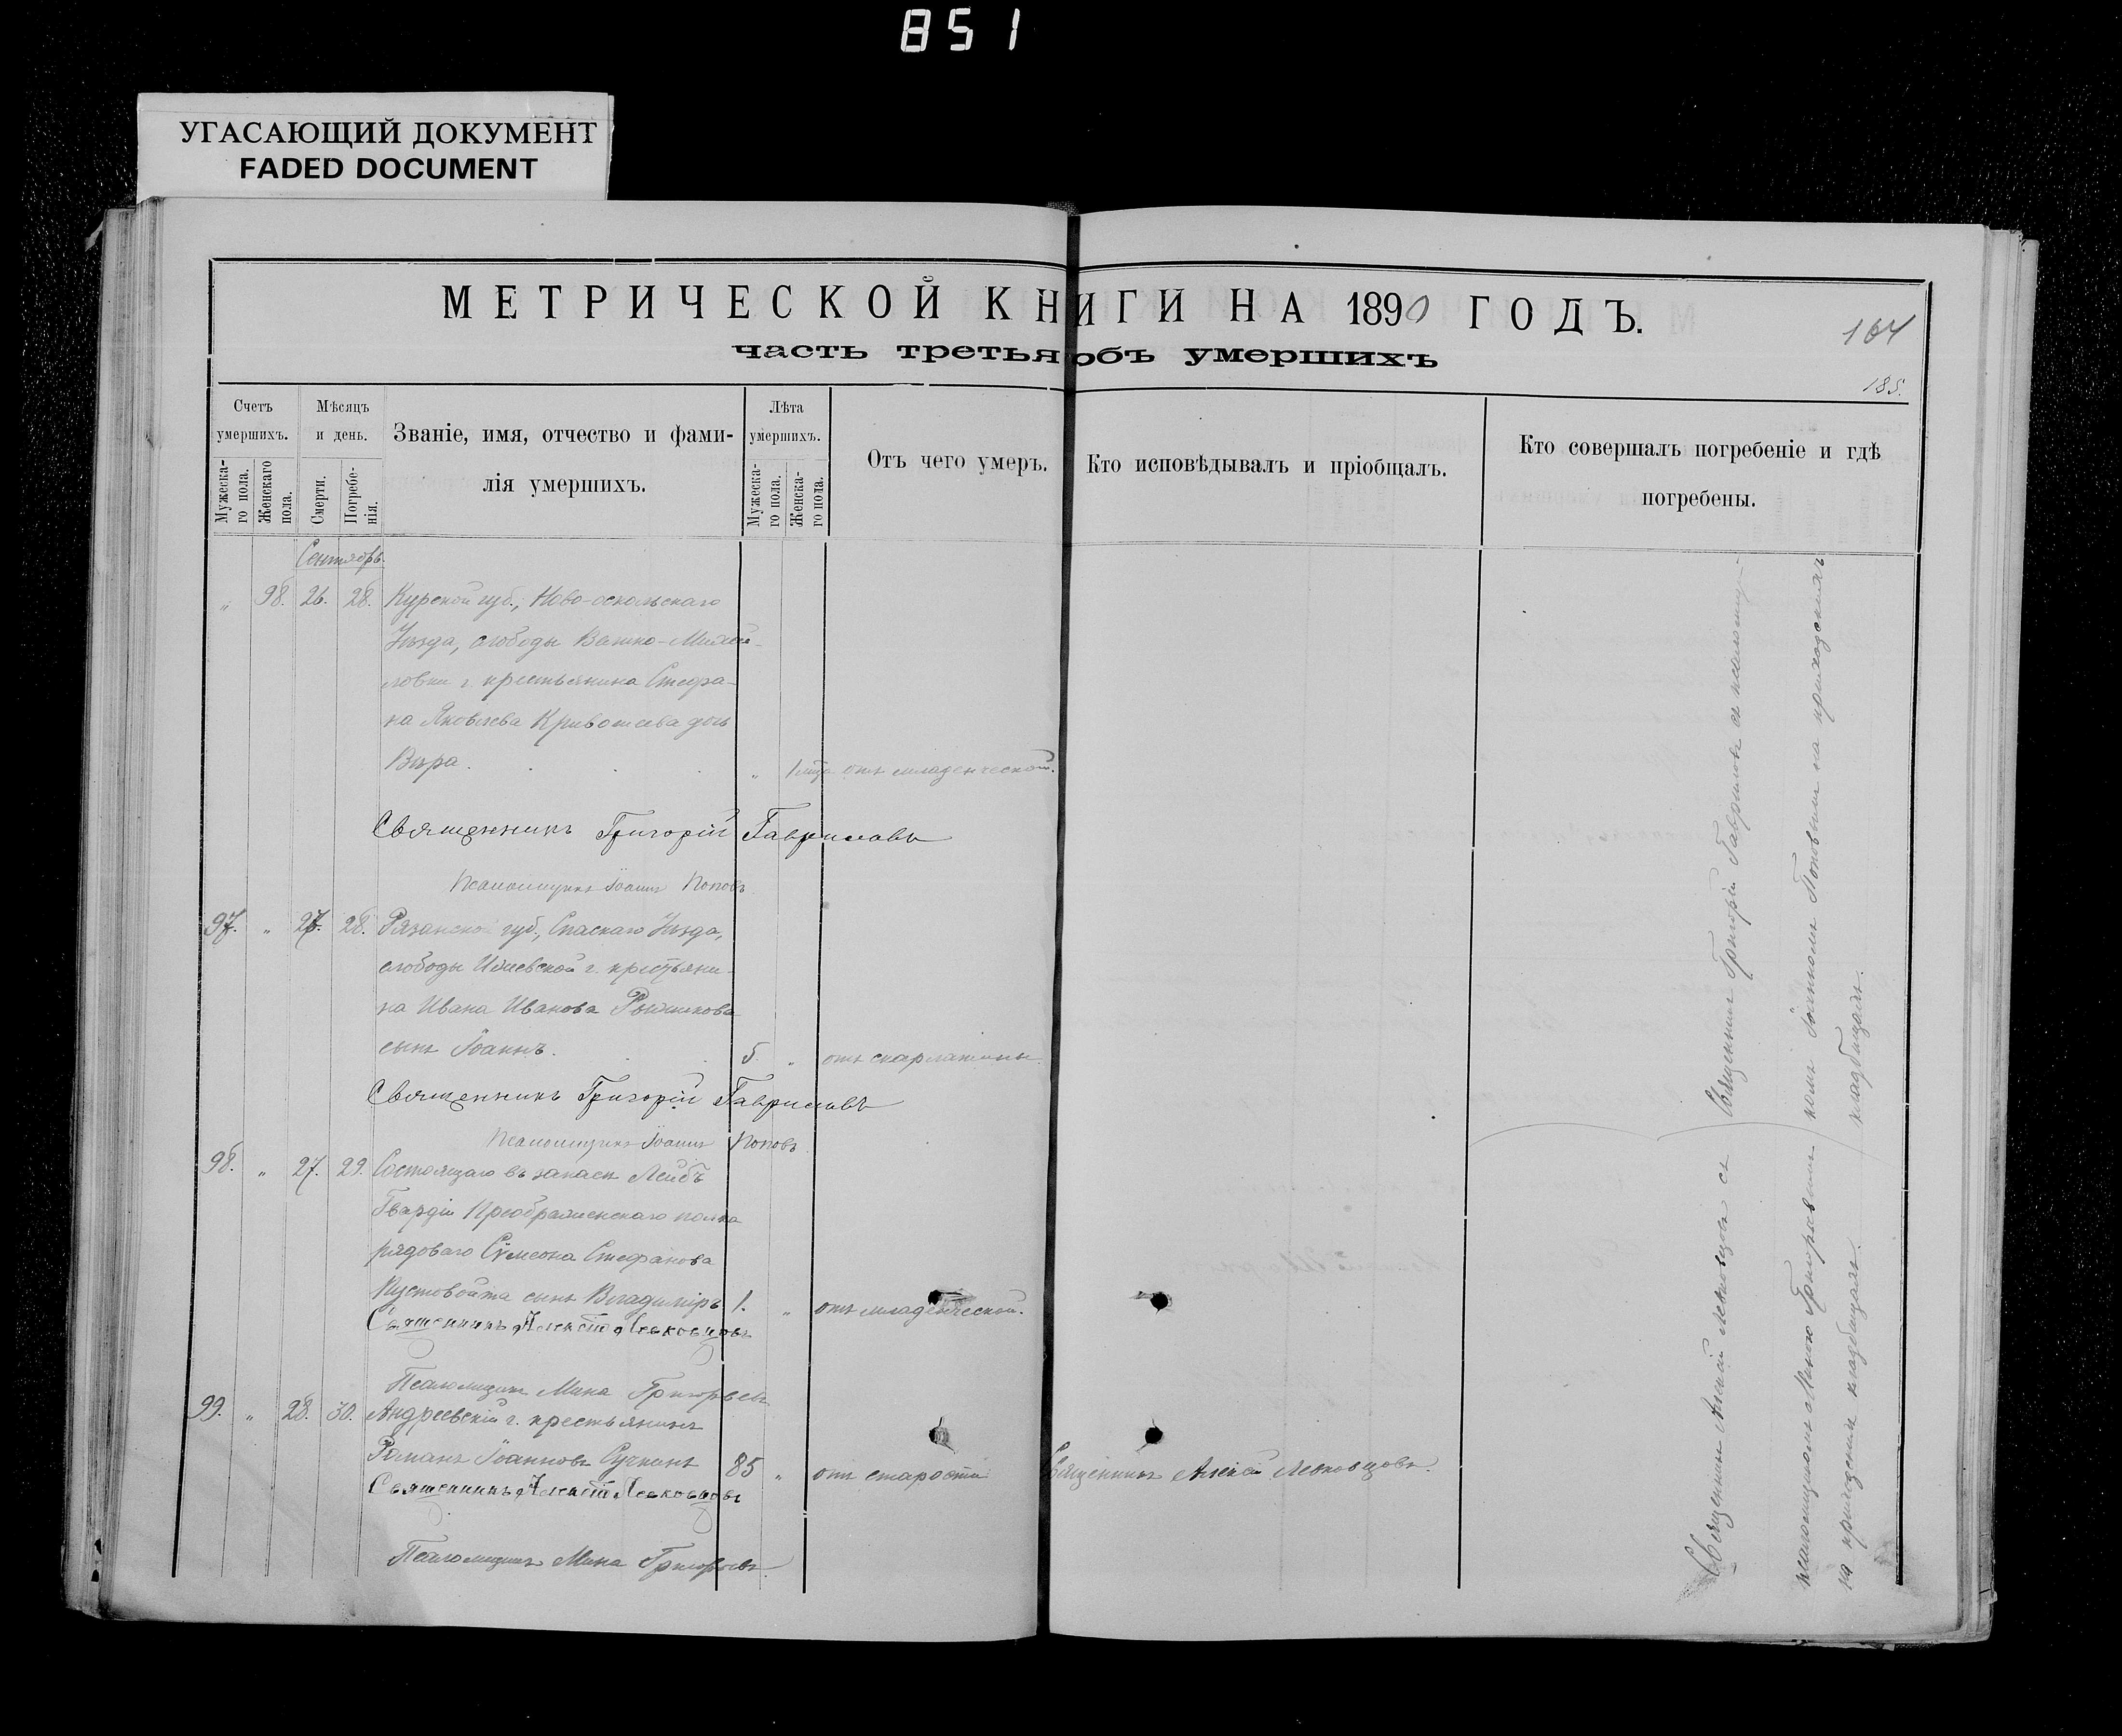 851
УГАСАЮЩИЙ ДОКУМЕНТ
FADED DOCUMENT
МЕТРИЧЕСКОЙ КНИГИ НА 1890 ГОДЪ.
164
часть третья объ умершихъ
185.
Счетъ умершихъ.
Мужескаго пола.
Женскаго пола.
Мѣсяцъ и день.
Смерти.
Погребенія.
Званіе, имя, отчество и фами-
лія умершихъ.
Лѣта умершихъ.
Мужескаго пола.
Женскаго пола.
Отъ чего умеръ.
Кто исповѣдывалъ и пріобщалъ.
Кто совершалъ погребеніе и гдѣ
погребены.
Сентябрь.
" 98. 26. 28. Курской губ., Ново-оскольскаго
Уѣзда, слободы
г. крестьянина Стефа-
на Яковлева Кривошеева дочь
Вѣра. " 1 мца отъ младенческой.
Священникъ Григорій Гавриловъ
Псаломщикъ Іоаннъ Поповъ
97. " 27. 28. Рязанской губ., Спаскаго Уѣзда,
слободы г. крестьяни-
на Ивана Иванова
сынъ Іоаннъ. 5. " отъ скарлатины
Священникъ Григорій Гавриловъ
Псаломщикъ Іоаннъ Поповъ
98. " 27. 29. Состоящаго въ запасѣ Лейбъ
Гвардіи Преображенскаго полка
рядоваго Сѵмеона Стефанова
Пустовойта сынъ Владиміръ 1. " отъ младенческой.
Священникъ Алексій Левковцовъ
Псаломщикъ Мина Григорьевъ
99. " 28. 30. Андреевскій г. крестьянинъ
Романъ Іоанновъ Сучкинъ 85 " отъ старости Священникъ Алексій Левковцовъ.
Священникъ Алексій Левковцовъ
Псаломщикъ Мина Григорьевъ
Священникъ Григорій Гавриловъ съ псаломщи-
комъ Іоанномъ Поповымъ на приходскомъ
кладбищѣ.
Священникъ Алексій Левковцовъ съ
псаломщикомъ Миною Григорьевымъ
на приходскомъ кладбищѣ.